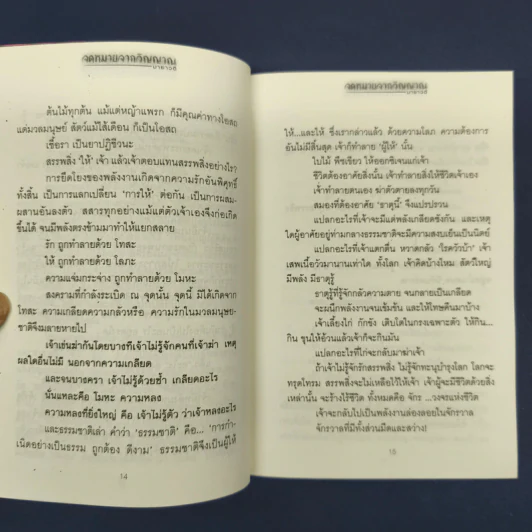 จดหมายจากวิญญาณ
ต้นไม้ทุกต้น แม้แต่หญ้าแพรก ก็มีคุณค่าทางโอสถ
แต่มวลมนุษย์ สัตว์แม้ไส้เดือน ก็เป็นโอสถ
เชื้อรา เป็นยาปฏิชีวนะ
สรรพสิ่ง 'ให้' เจ้า แล้วเจ้าตอบแทนสรรพสิ่งอย่างไร?
การยึดโยงของพลังงานเกิดจากความรักอันพิศุทธิ์
ทั้งสิ้น เป็นการแลกเปลี่ยน 'การให้' ต่อกัน เป็นการผสม-
ผสานอันลงตัว สสารทุกอย่างแม้แต่ตัวเจ้าเองจึงก่อเกิด
ขึ้นได้ จนมีพลังตรงข้ามมาทำให้แยกสลาย
รัก ถูกทำลายด้วย โทสะ
ให้ ถูกทำลายด้วย โลภะ
ความแจ่มกระจ่าง ถูกทำลายด้วย โมหะ
สงครามที่กำลังระเบิด ณ จุดนั้น จุดนี้ มิได้เกิดจาก
โทสะ ความเกลียดความกลัวหรือ ความรักในมวลมนุษย-
ชาติจึงมลายหายไป
เจ้าเข่นฆ่ากันโดยบางทีเจ้าไม่รู้จักคนที่เจ้าฆ่า เหตุ
ผลใดอื่นไม่มี นอกจากความเกลียด
และจนบางครา เจ้าไม่รู้ด้วยซ้ำ เกลียดอะไร
นั่นแหละคือ โมหะ ความหลง
ความหลงที่ยิ่งใหญ่ คือ เจ้าไม่รู้ตัว ว่าเจ้าหลงอะไร
และธรรมชาติเล่า คำว่า 'ธรรมชาติ' คือ... 'การกำ-
เนิดอย่างเป็นธรรม ถูกต้อง ดีงาม' ธรรมชาติจึงเป็นผู้ให้
14
จดหมายจากวิญญาณ
ให้...และให้ ซึ่งเรากล่าวแล้ว ด้วยความโลภ ความต้องการ
อันไม่มีสิ้นสุด เจ้าก็ทำลาย 'ผู้ให้' นั้น
ใบไม้ พืชเขียว ให้ออกซิเจนแก่เจ้า
ชีวิตต้องอาศัยสิ่งนั้น เจ้าทำลายสิ่งให้ชีวิตเจ้าเอง
เจ้าทำลายตนเอง ฆ่าตัวตายลงทุกวัน
สมองที่ต้องอาศัย 'ธาตุนี้' จึงแปรปรวน
แปลกอะไรที่เจ้าจะมีแต่พลังเกลียดชังกัน และเหตุ
ใดผู้อาศัยอยู่ท่ามกลางธรรมชาติจะมีความสงบเย็นเป็นนิตย์
แปลกอะไรที่เจ้าแตกตื่น หวาดกลัว 'โรควัวบ้า' เจ้า
เสพเนื้อวัวมานานเท่าใด ทั้งโลก เจ้าคิดบ้างไหม สัตว์ใหญ่
มีพลัง มีธาตุรู้
ธาตุรู้ที่รู้จักกลัวความตาย จนกลายเป็นเกลียด
จะผนึกพลังงานจนเข้มข้น และให้โทษคืนมาบ้าง
เจ้าเลี้ยงไก่ กักขัง เติบโตในกรงเฉพาะตัว ให้กิน...
กิน ขุนให้อ้วนแล้วเจ้าก็จะกินมัน
แปลกอะไรที่ไก่จะกลับมาฆ่าเจ้า
ถ้าเจ้าไม่รู้จักรักสรรพสิ่ง ไม่รู้จักทะนุบำรุงโลก โลกจะ
ทรุดโทรม สรรพสิ่งจะไม่เหลือไว้ให้เจ้า เจ้าผู้จะมีชีวิตด้วยสิ่ง
เหล่านั้น จะร้างไร้ชีวิต ทั้งหมดคือ จักร ...วงจรแห่งชีวิต
เจ้าจะกลับไปเป็นพลังงานล่องลอยในจักรวาล
จักรวาลที่มีทั้งส่วนมืดและสว่าง!
15